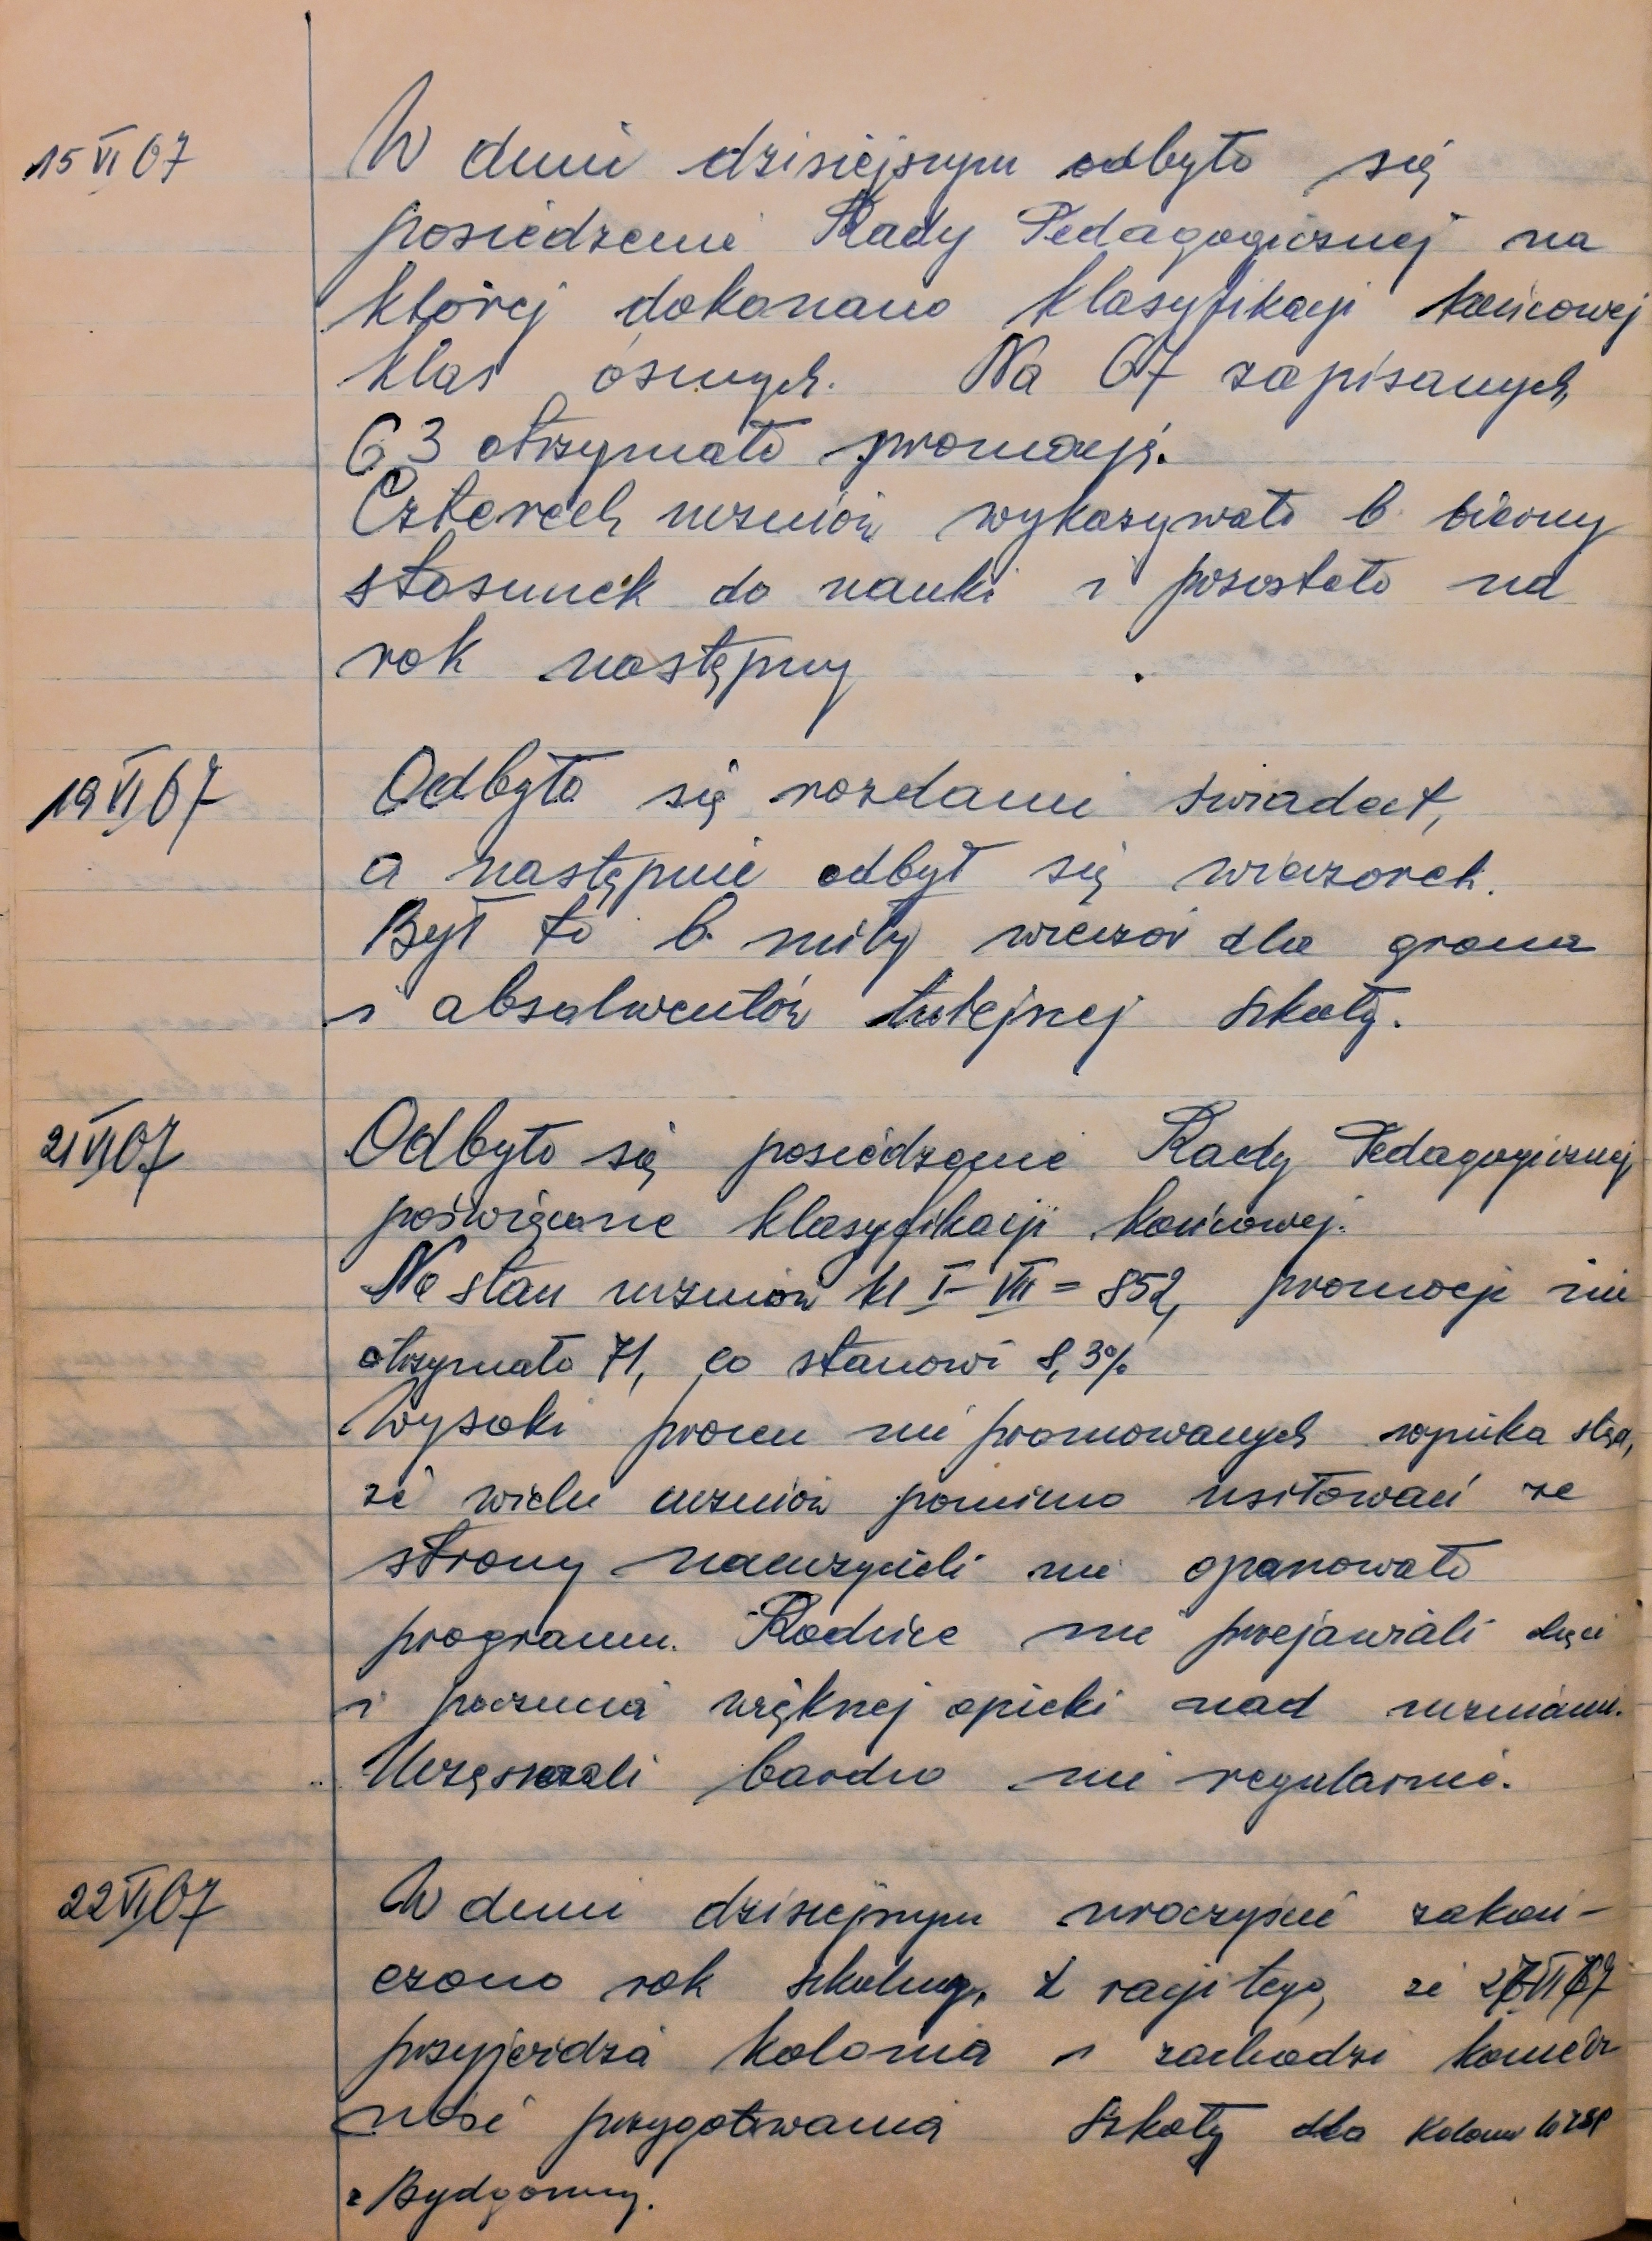 15 VI 67 W dniu dzisiejszym odbyło się
posiedzenie Rady Pedagogicznej na
której dokonano klasyfikacji końcowej
klas ósmych. Na 67 zapisanych,
63 otrzymało promocję.
Czterech uczniów wykazywało b. bierny
stosunek do nauki i pozostało na
rok następny.
19 VI 67 Odbyło się rozdanie świadect,
a następnie odbył się wieczorek.
Był to b. miły wieczór dla grona
i absolwentów tutejszej szkoły.
21 VI 67 Odbyło się posiedzenie Rady Pedagogicznej
poświęcone klasyfikacji końcowej.
Na stan uczniów kl I-VII = 852, promocji nie
otrzymało 71, co stanowi 8,3%
Wysoki procen nie promowanych wynika stąd,
że wielu uczniów pomimo usiłowań ze
strony nauczycieli nie opanowało
programu. Rodzice nie przejawiali chęci
i poczucia większej opieki nad uczniami.
Uczęszczali bardzo nie regularnie.
22 VI 67 W dniu dzisiejszym uroczyście zakoń-
czono rok szkolny, z racji tego, że VI 67
przyjeżdża kolonia i zachodzi koniecz
ność przygotowania szkoły dla Kolonii
z Bydgoszczy.